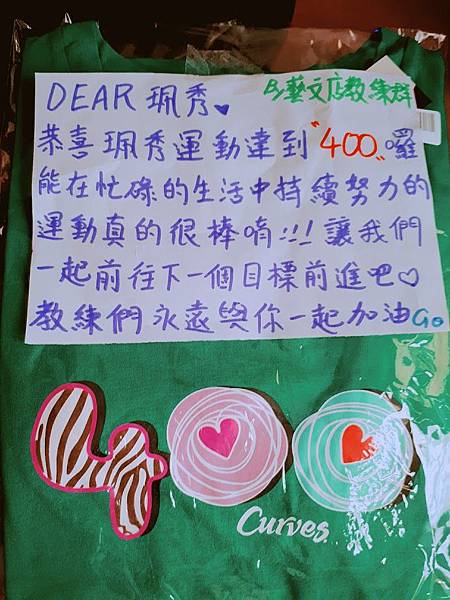 DEAR 珮秀♥
By藝文店教練群
恭喜珮秀運動達到"400"囉
能在忙碌的生活中持續努力的
運動真的很棒唷!!! 讓我們
一起前往下一個目標前進吧♡
教練們永遠與你一起加油Go
400
Curves